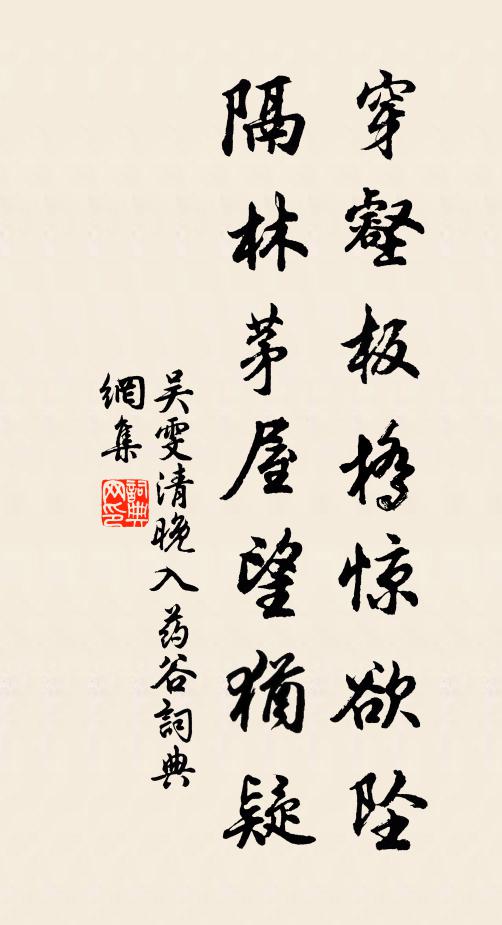 穿壑板桥惊欲坠
隔林茅屋望犹疑
吴雯清晚入药谷词典
網集
詞典網印